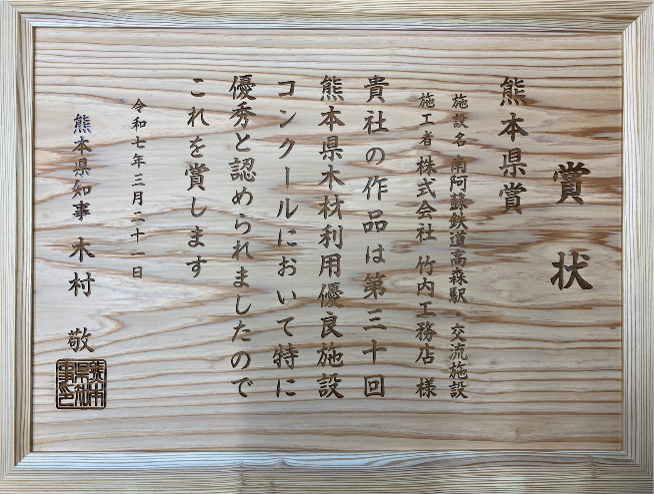 賞状
熊本県賞
施設名 南阿蘇鉄道高森駅・交流施設
施工者 株式会社 竹内工務店 様
貴社の作品は第三十回
熊本県木材利用優良施設
コンクールにおいて特に
優秀と認められましたので
これを賞します
令和七年三月二十一日
熊本県知事 木村 敬